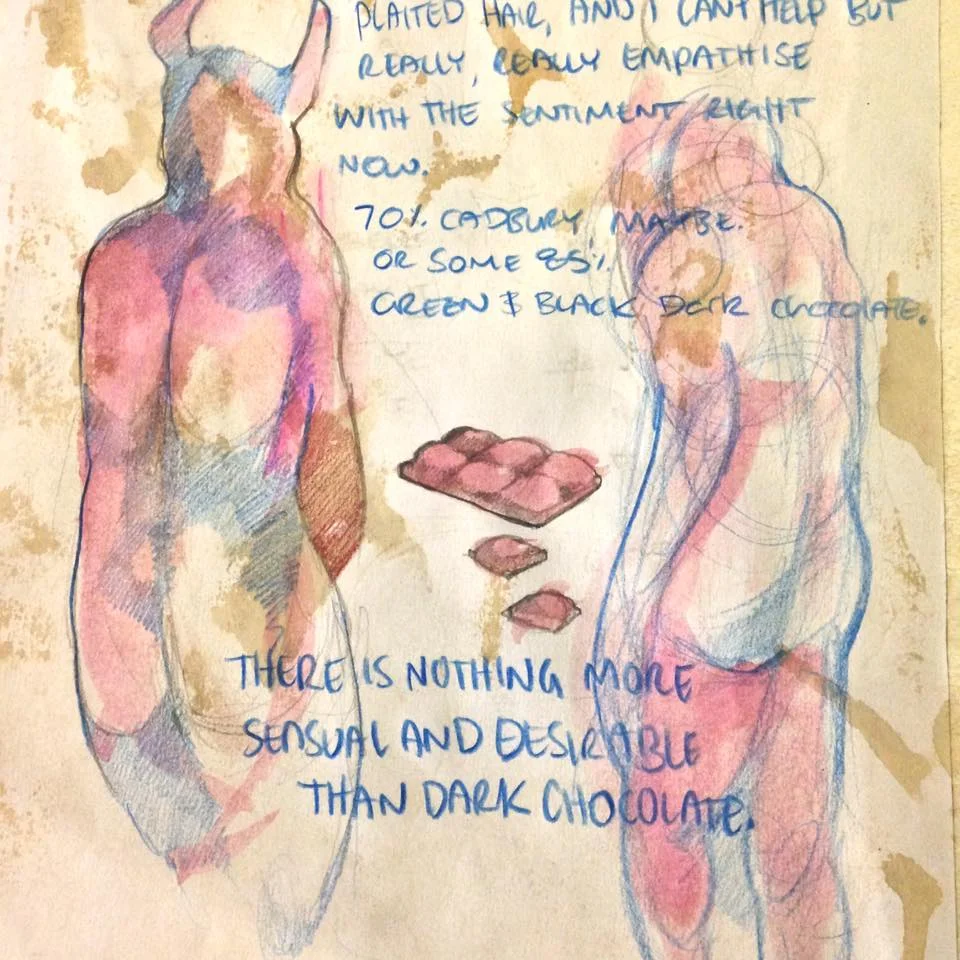 PLAITED HAIR, AND I CAN'T HELP BUT
REALLY, REALLY EMPATHISE
WITH THE SENTIMENT RIGHT
NOW.
70% CADBURY, MAYBE.
OR SOME 85%
GREEN & BLACK Dark chocolate.
THERE IS NOTHING MORE
SENSUAL AND DESIRABLE
THAN DARK CHOCOLATE.